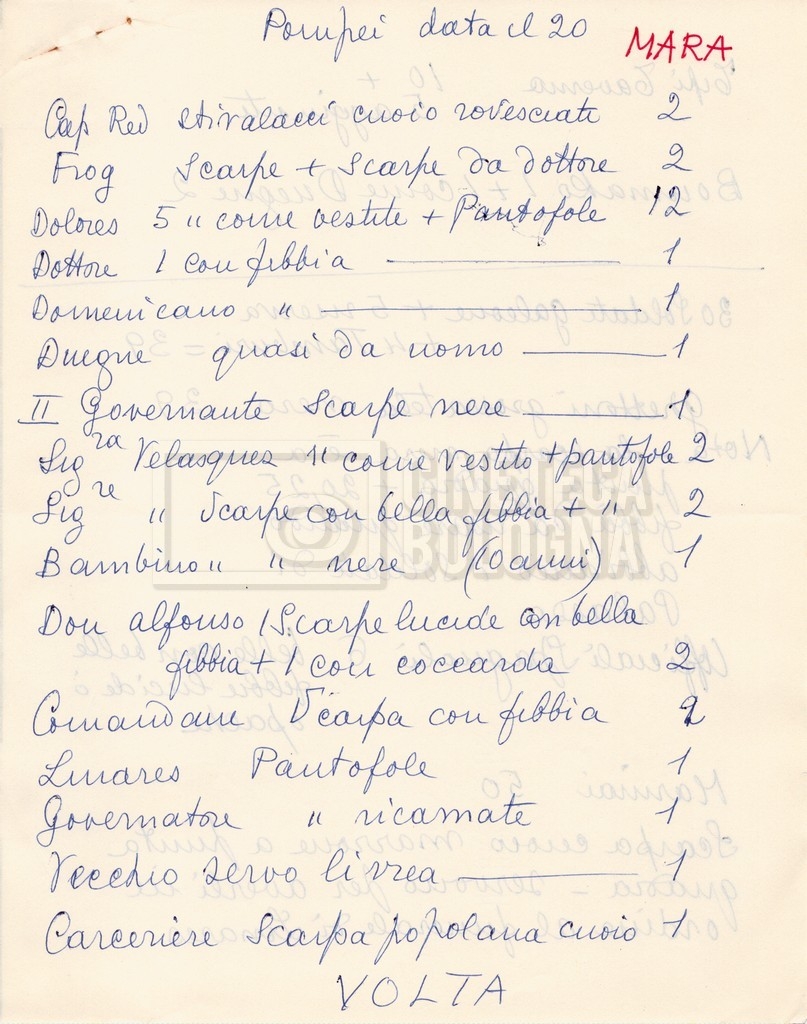 Pompei data il 20
MARA
Cap Red stivalacci cuoio rovesciate 2
Frog Scarpe + Scarpe da dottore 2
Dolores 5 " come vestite + Pantofole 12
Dottore 1 con fibbia — 1
Domenicano " — 1
Duegne quasi da uomo — 1
II Governante Scarpe nere — 1
Sig ra Velasquez 1" come vestito + pantofole 2
Sig re " Scarpe con bella fibbia + " 2
Bambino " " nere (10 anni) 1
Don alfonso 1 Scarpe lucide con bella
fibbia + 1 con coccarda 2
Scarpa con fibbia
Linares Pantofole 1
Governatore " ricamate 1
Vecchio servo livrea — 1
Carceriere Scarpa popolana cuoio 1
VOLTA
CINETECA
BOLOGNA